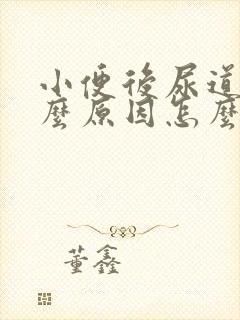 小便後尿道
麼原因怎麼
董鑫